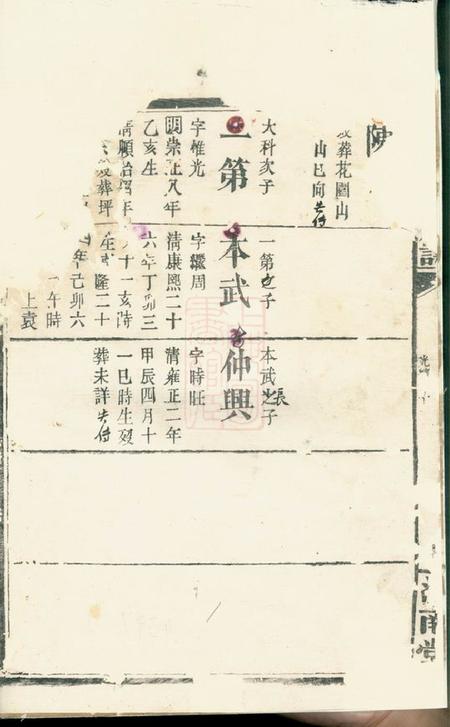 歿葬花園山
山巳向失傳
大科次子
一第
字惟光
明崇正八年
乙亥生
清順治
葬坪
一第之子
本武
字繼周
清康熙二十
六年丁卯三
十一亥時
隆二十
年己卯六
午時
上袁
本武之子
張
仲興
字時旺
清雍正二年
甲辰四月十
一巳時生歿
葬未詳失傳